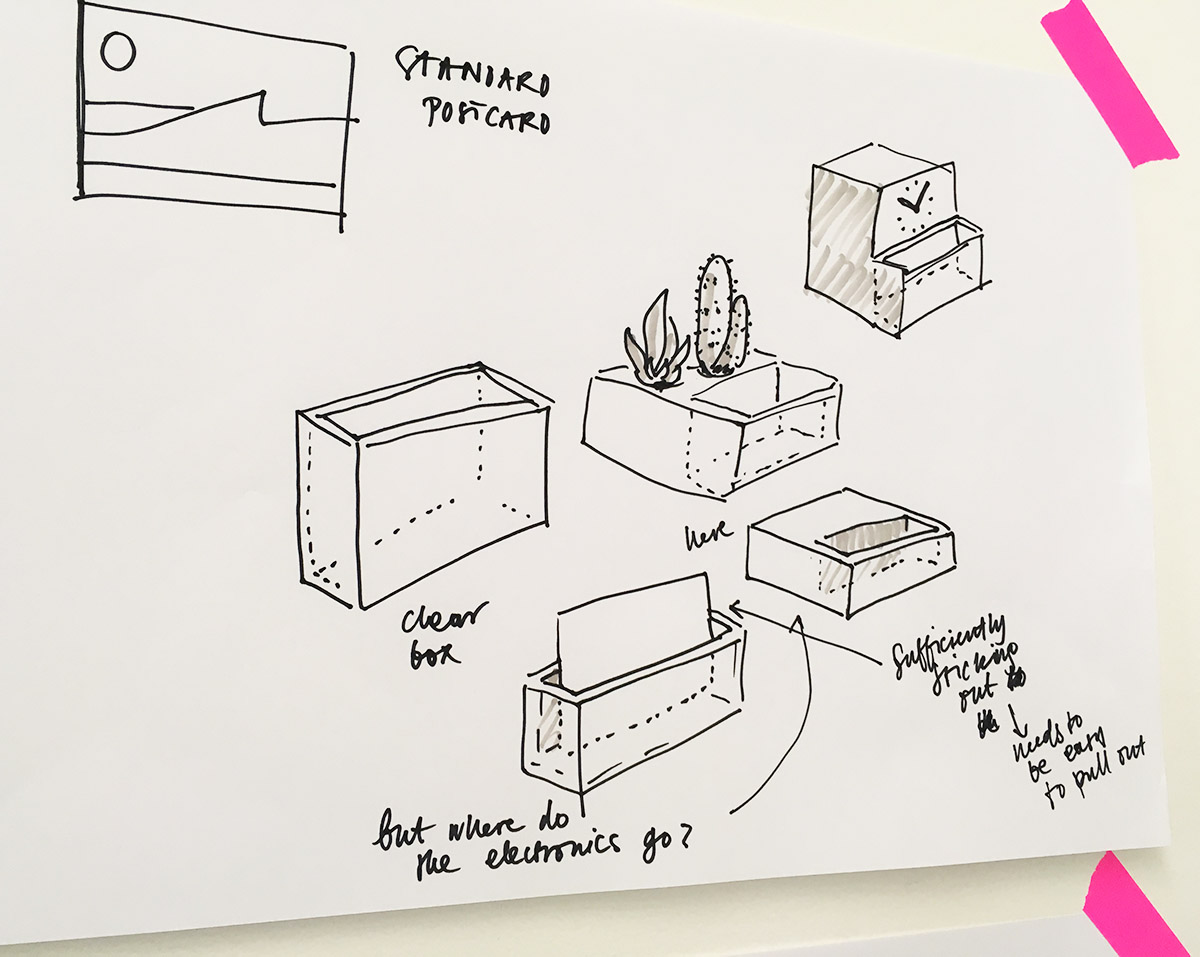 STANDARD
POSTCARD
here
clear
box
Sufficiently
sticking
out
needs to
be easy
to pull out
but where do
the electronics go?